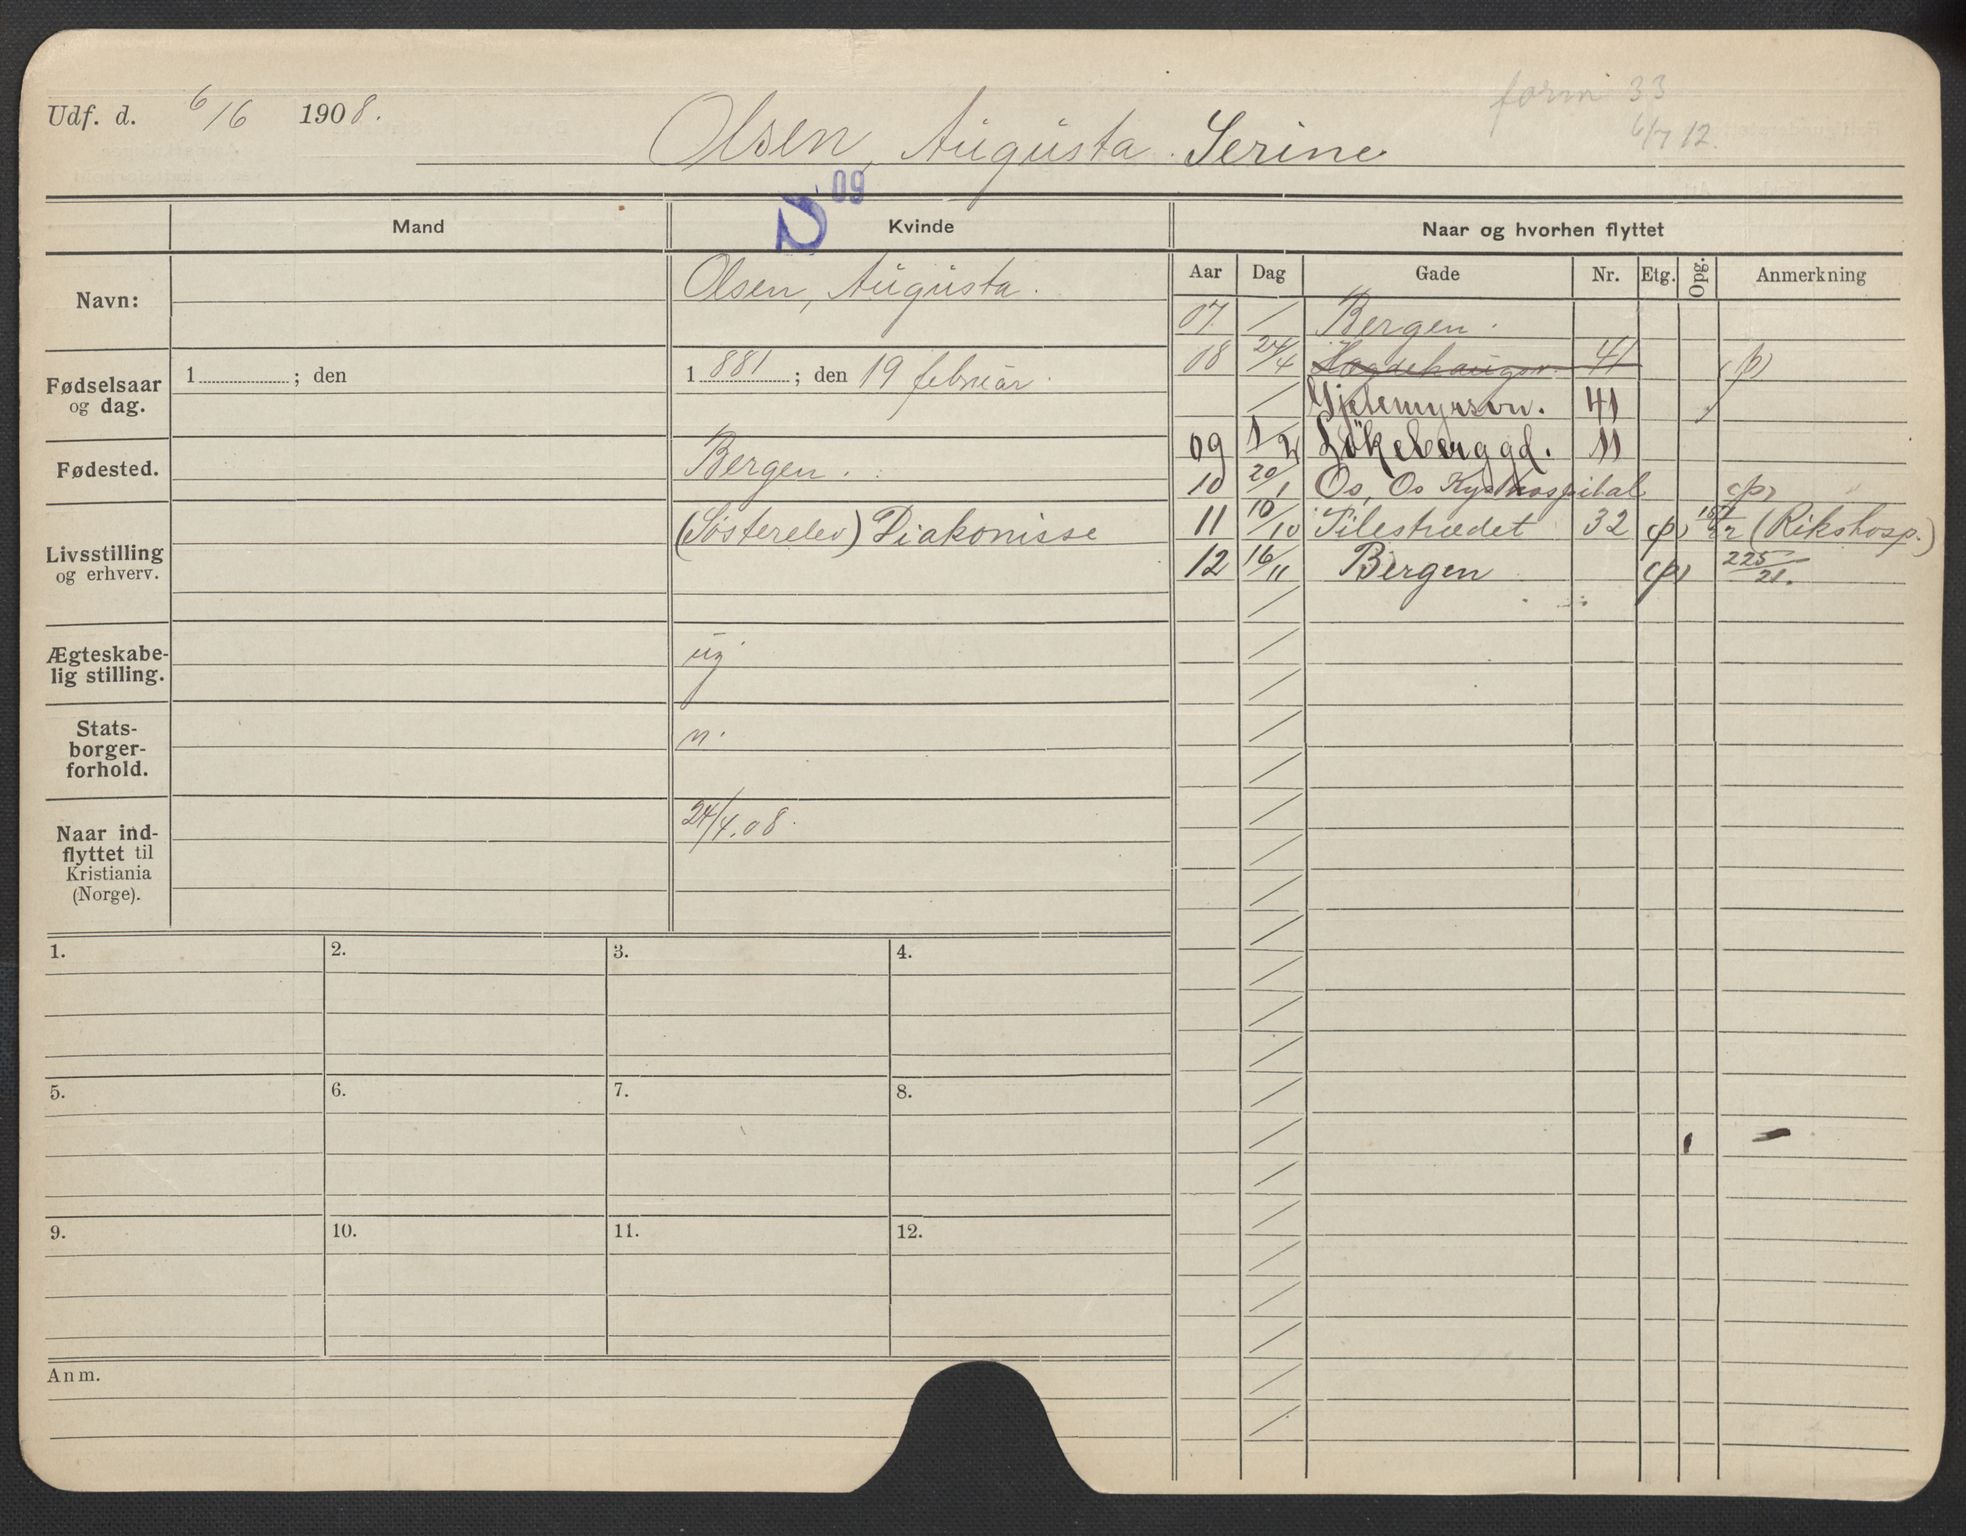 form 33
Udf. d. 6/16 1908.
Olsen, Augusta Serine
6/7 12.
09
Mand
Kvinde
Naar og hvorhen flyttet
Aar Dag Gade Nr. Etg. Opg. Anmerkning
Navn:
Olsen, Augusta.
Fødselsaar
og dag.
1 ; den
1 881 ; den 19 februar.
Fødested.
Bergen.
Livsstilling
og erhverv.
(Søsterelev) Diakonisse
Ægteskabe-
lig stilling.
ug
Stats-
borger-
forhold.
n.
Naar ind-
flyttet til
Kristiania
(Norge).
24/4.08.
07. / Bergen.
08 24/4 Hægdehaugsv. 41 (p)
/ Gjetemyrsvn. 41
09 1/2 Løkeberggd. 11
10 20/1 Os, Os Kysthospital (p)
11 10/10 Pilestrædet 32 (p) (Rikshosp.)
12 16/11 Bergen (p) 225/21.
1.
2.
3.
4.
5.
6.
7.
8.
9.
10.
11.
12.
Anm.